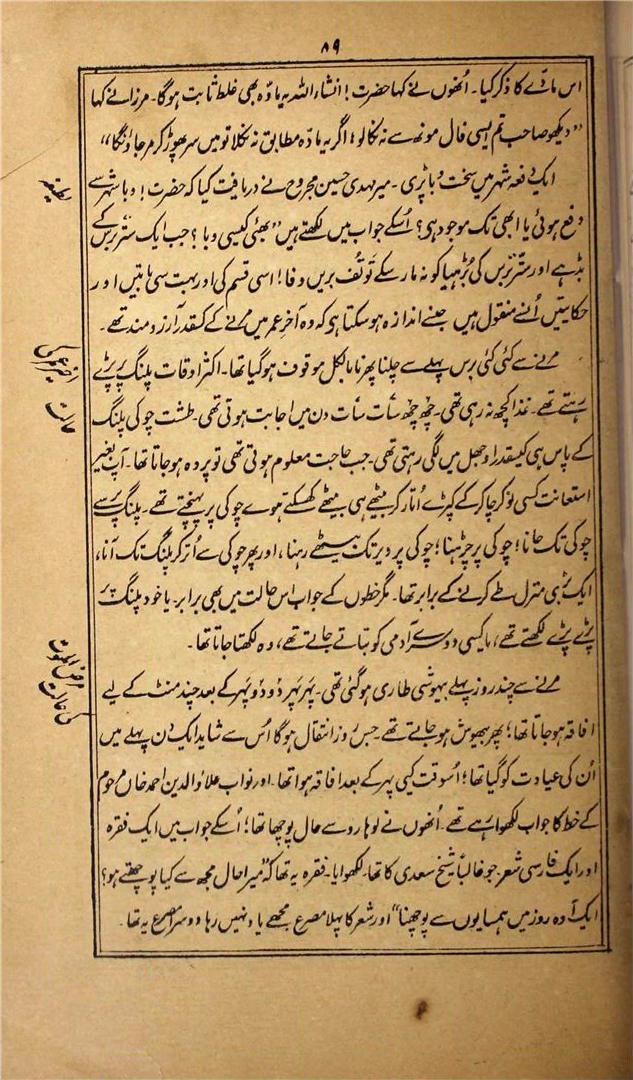 ۸۹
اس مادّے کا ذکر کیا۔ اُنھوں نے کہا حضرت! انشاء اللہ یہ مادّہ بھی غلط ثابت ہوگا۔ مرزا نے کہا
"دیکھو صاحب تم ایسی فال مونھ سے نہ نکالو؛ اگر یہ مادّہ مطابق نہ نکلا تو میں سر پھوڑ کر مر جاؤنگا"
لطیفہ
ایک دفعہ شہر میں سخت وبا پڑی۔ میر مہدی حسین مجروح نے دریافت کیا کہ حضرت! وبا شہر سے
دفع ہوئی یا ابھی تک موجود ہی؟ اُسکے جواب میں لکھتے ہیں "بھئی کیسی وبا؟ جب ایک ستّر برس کے
بڈھے اور ستّر برس کی بُڑھیا کو نہ مار سکے تو تُف بریں وبا! اسی قسم کی اور بہت سی باتیں اور
حکایتیں اُنسے منقول ہیں جنسے اندازہ ہو سکتا ہی کہ وہ آخر عمر میں مرنے کے کسقدر آرزومند تھے۔
اخیر عمر کی
حالت
مرنے سے کئی کئی برس پہلے سے چلنا پھرنا بالکل موقوف ہو گیا تھا۔ اکثر اوقات پلنگ پر پڑے
رہتے تھے۔ غذا کچھ نہ رہی تھی۔ چھ چھ سات سات دن میں اجابت ہوتی تھی۔ طشت چوکی پلنگ
کے پاس ہی کسیقدر اوجھل میں لگی رہتی تھی۔ جب حاجت معلوم ہوتی تھی تو پردہ ہو جاتا تھا۔ آپ بغیر
استعانت کسی نوکر چاکر کے کپڑے اُتار کر بیٹھے ہی بیٹھے کھسکتے ہوے چوکی پر پہنچتے تھے۔ پلنگ پر سے
چوکی تک جانا؛ چوکی پر چڑھنا؛ چوکی پر دیر تک بیٹھے رہنا، اور پھر چوکی سے اُتر کر پلنگ تک آنا،
ایک بڑی منزل طے کرنے کے برابر تھا۔ مگر خطوں کے جواب اس حالت میں بھی برابر۔ یا خود پلنگ پر
پڑے پڑے لکھتے تھے، یا کسی دوسرے آدمی کو بتاتے جاتے تھے، وہ لکھتا جاتا تھا۔
مرض الموت
کی حالت
مرنے سے چند روز پہلے بیہوشی طاری ہو گئی تھی۔ پہر پہر دو دو پہر کے بعد چند منٹ کے لیے
افاقہ ہو جاتا تھا؛ پھر بیہوش ہو جاتے تھے۔ جس روز انتقال ہوگا اُس سے شاید ایک دن پہلے میں
اُن کی عیادت کو گیا تھا؛ اُسوقت کئی پہر کے بعد افاقہ ہوا تھا۔ اور نواب علاؤالدین احمد خاں مرحوم
کے خط کا جواب لکھوا رہے تھے۔ اُنھوں نے لوہارو سے حال پوچھا تھا؛ اُسکے جواب میں ایک فقرہ
اور ایک فارسی شعر جو غالباً شیخ سعدی کا تھا۔ لکھوایا۔ فقرہ یہ تھا کہ "میرا حال مجھ سے کیا پوچھتے ہو؟
ایک آدہ روز میں ہمسایوں سے پوچھنا" اور شعر کا پہلا مصرع مجھے یاد نہیں رہا دوسرا مصرع یہ تھا۔